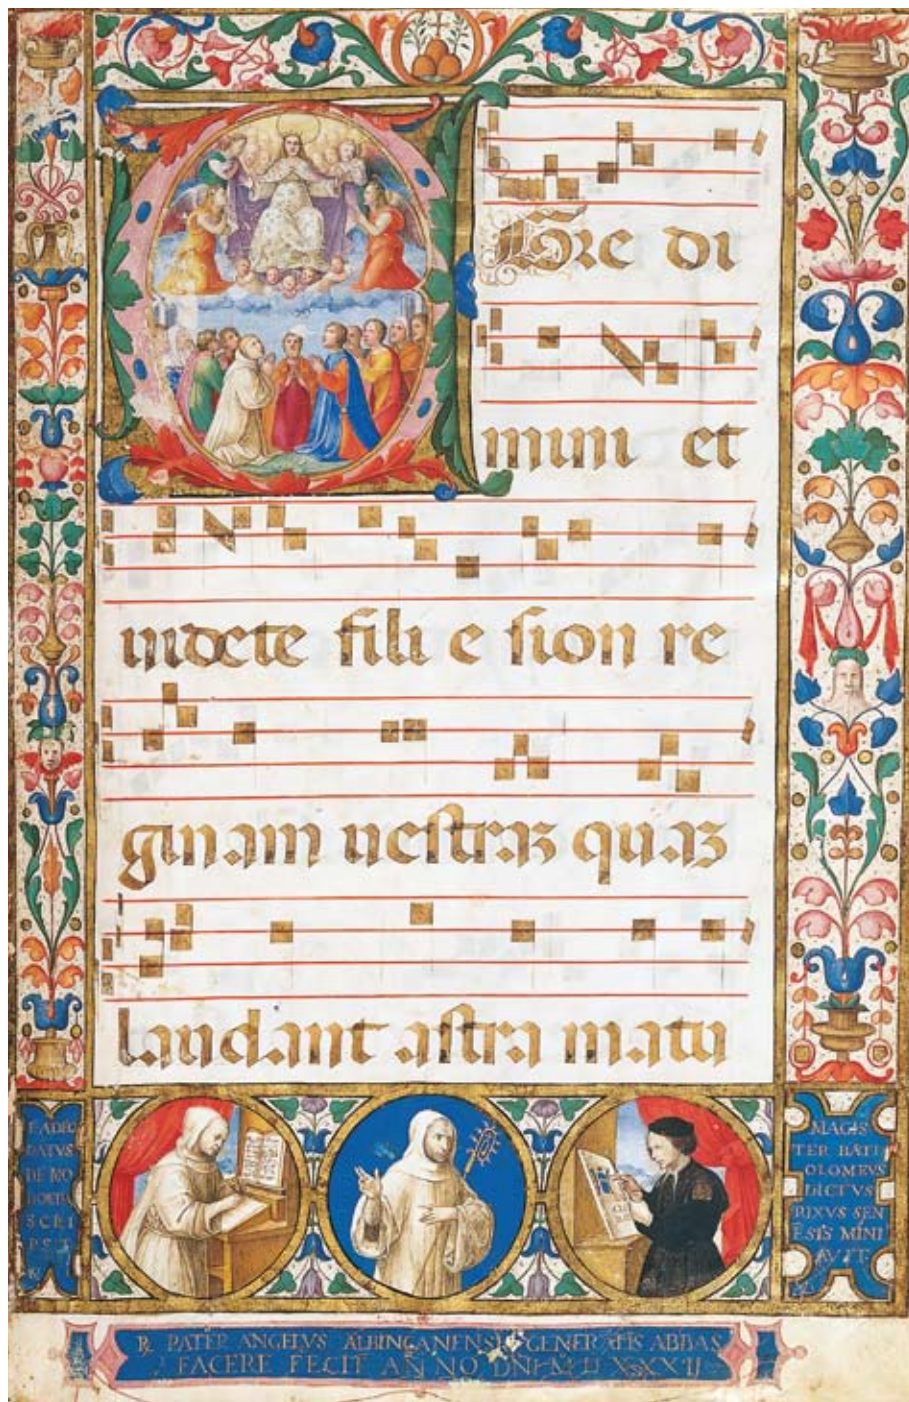 E
Gre di
mini et
uidete fili e sion re
ginam uestraz quaz
laudant astra matu
F. ADEO
DATVS
DE MO
SCRI
PSIT
MAGIS
TER BATI
OLOMEVS
DICTVS
RIXVS SEN
ESIS MINI
AVIT
R PATER ANGELVS ALBINGANENSIS GENERALIS ABBAS
FACERE FECIT ANNO DNI M D XXXII